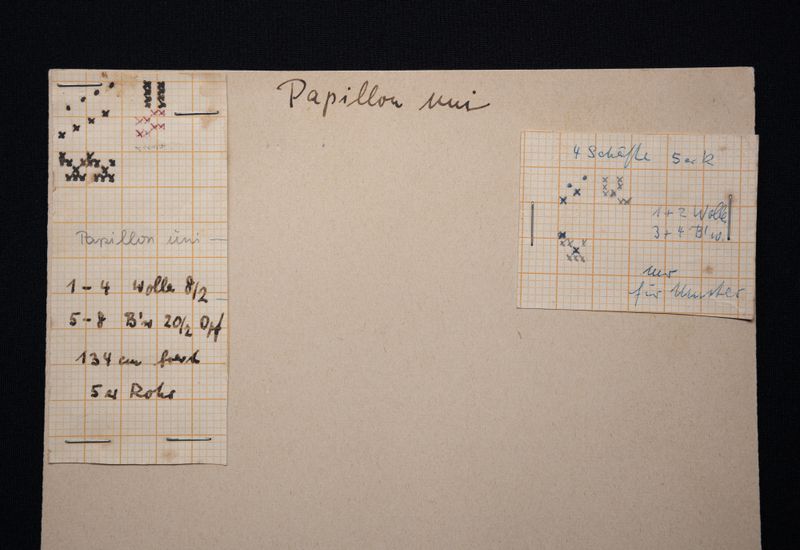 Papillon uni
Papillon uni
1-4 Wolle 8/2
5-8 B'w 20/2
134 cm breit
5er Rohr
4 Schäfte 5er R
1+2 Wolle
3+4 B'w.
nur
für Muster